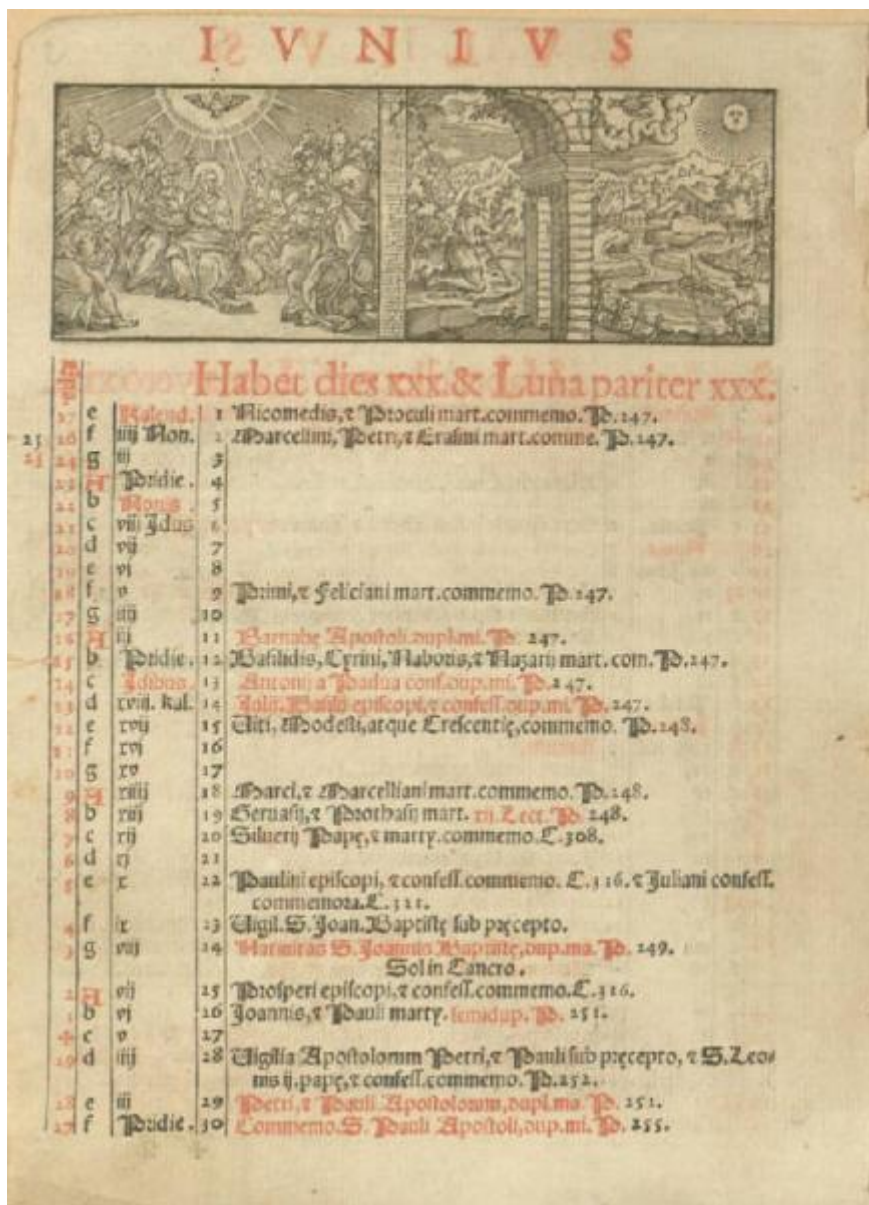 IVNIVS
Habet dies xxx. & Luna pariter xxx.
27 e Kalend. 1 Nicomedis, ⁊ Proculi mart. commemo. P. 247.
25 26 f iiij Non. 2 Marcellini, Petri, ⁊ Erasmi mart. comme. P. 247.
25 24 g iij 3
23 A Pridie. 4
22 b Nonis. 5
21 c viij Idus 6
20 d vij 7
19 e vj 8
18 f v 9 Primi, ⁊ Feliciani mart. commemo. P. 247.
17 g iiij 10
16 A iij 11 Barnabe Apostoli. dupl. mi. P. 247.
15 b Pridie. 12 Basilidis, Cyrini, Naboris, ⁊ Nazarij mart. com. P. 247.
14 c Idibus. 13 Antonij a Padua conf. dup. mi. P. 247.
13 d xviij. kal. 14 Basilij episcopi, ⁊ confess. dup. mi. P. 247.
12 e xvij 15 Viti, Modesti, atque Crescentię, commemo. P. 248.
11 f xvj 16
10 g xv 17
9 A xiiij 18 Marci, ⁊ Marcelliani mart. commemo. P. 248.
8 b xiij 19 Geruasij, ⁊ Prothasij mart. xij. Lect. P. 248.
7 c xij 20 Siluerij Papę, ⁊ marty. commemo. C. 308.
6 d xj 21
5 e x 22 Paulini episcopi, ⁊ confess. commemo. C. 316. ⁊ Juliani confess.
commemora. C. 311.
4 f ix 23 Vigil. S. Joan. Baptistę sub pręcepto.
3 g viij 24 Natiuitas S. Joannis Baptistę, dup. ma. P. 249.
Sol in Cancro.
2 A vij 25 Prosperi episcopi, ⁊ confess. commemo. C. 316.
1 b vj 26 Joannis, ⁊ Pauli marty. semidup. P. 251.
c v 27
29 d iiij 28 Vigilia Apostolorum Petri, ⁊ Pauli sub pręcepto, ⁊ S. Leo-
nis ij. papę, ⁊ confess. commemo. P. 252.
28 e iij 29 Petri, ⁊ Pauli Apostolorum, dupl. ma. P. 251.
27 f Pridie. 30 Commemo. S. Pauli Apostoli, dup. mi. P. 255.